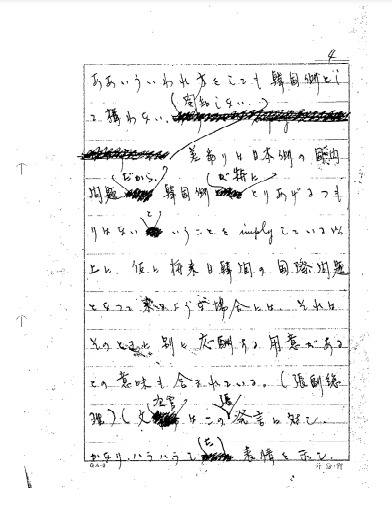 4
ああいういわれ方をしても韓国側とし
て構わない。(関知しない…)
差当りは日本側の国内
問題(だから、)韓国側(が特に)とりあげるつも
りはないということを imply している以
上に、仮に将来日韓間の国際問題
となって来るような場合には、それは
そのときに別に応酬する用意がある
との意味も含まれている。(張副総
理)(文 はこの発言に対し、
かなり、ハラハラした表情を示し、
GA-6